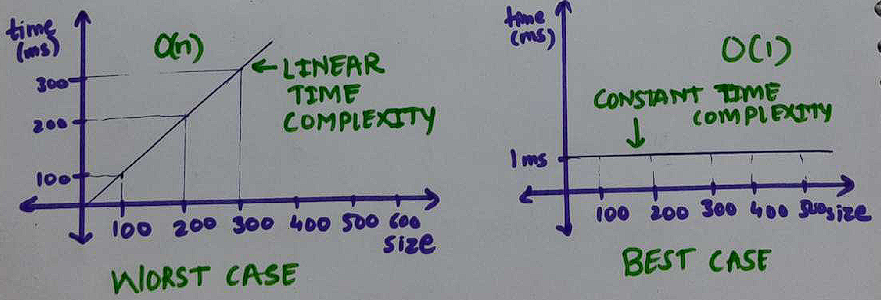 time
(ms)
O(n)
300
200
100
← LINEAR
TIME
COMPLEXITY
100 200 300 400 500 600
size
WORST CASE
time
(ms)
O(1)
CONSTANT TIME
COMPLEXITY
1ms
100 200 300 400 500 size
BEST CASE